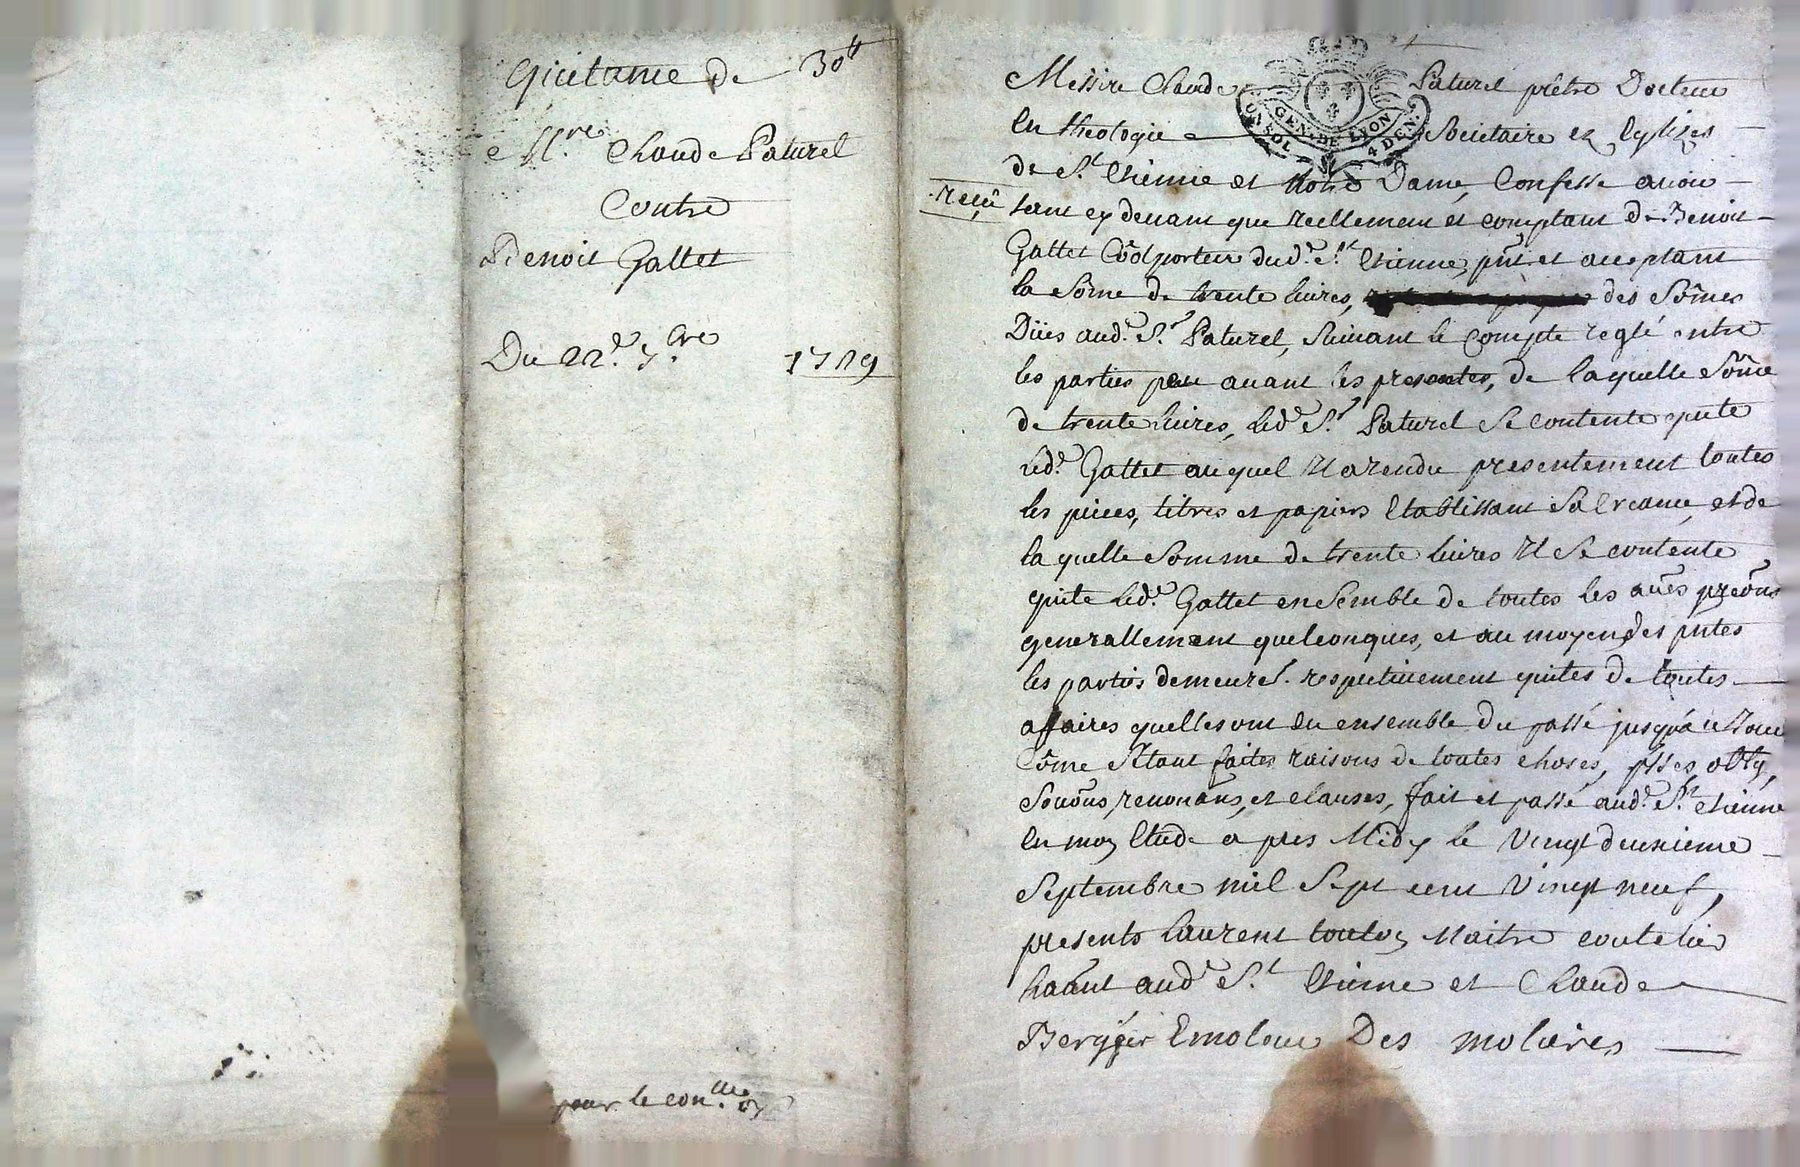 Quitance de 30lt
Mre Claude Paturel
Contre
Benoit Gattet
Du 22e 7bre 1729
pour le con.lle
Messire Claude Paturel prêtre Docteur
En theologie Societaire ez Eglises
de St Etienne et Notre Dame, Confesse avoir
reçû
tant cy devant que reellement et comptant de Benoit
Gattet Côlporteur dud. St Etienne, pnt et acceptant
la Sôme de trente livres, des Sômes
Düës aud. Sr Paturel, Suivant le Compte reglé entre
les parties peu avant les presentes, de laquelle Sôme
de trente livres, led. Sr Paturel Se contente quite
led. Gattet au quel Il a rendu presentement toutes
les pieces, titres et papiers Etablissant Sa Creance, et de
la quelle Somme de trente livres Il Se contente
quite led. Gattet ensemble de toutes les aûes preôns
generallement quelconques, et au moyen des pntes
les parties demeure. respectivement quites de toutes
affaires quelles ont eu ensemble du passé jusqu'à ce Jour
Côme S'étant faites raisons de toutes choses, psses, oblig,
Soûons, renonâns, et clauses, fait et passé aud. St Etienne
En mon Etude a pres Midy le Vingt deuxieme
Septembre mil Sept cent Vingt neuf,
presents Laurent Maitre coutelier
haânt aud. St Etienne et Claude
Beryger Emoleur Des molieres